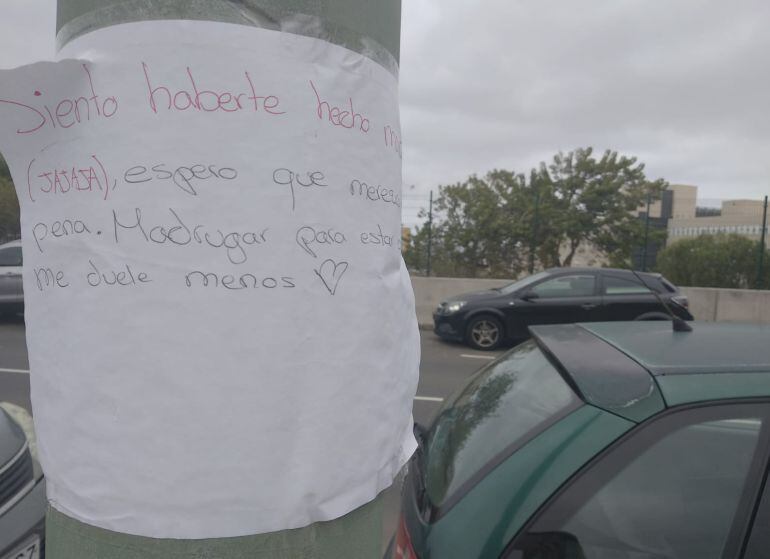 Siento haberte hecho
(JAJAJA), espero que
pena. Madrugar para estar
me duele menos ♡